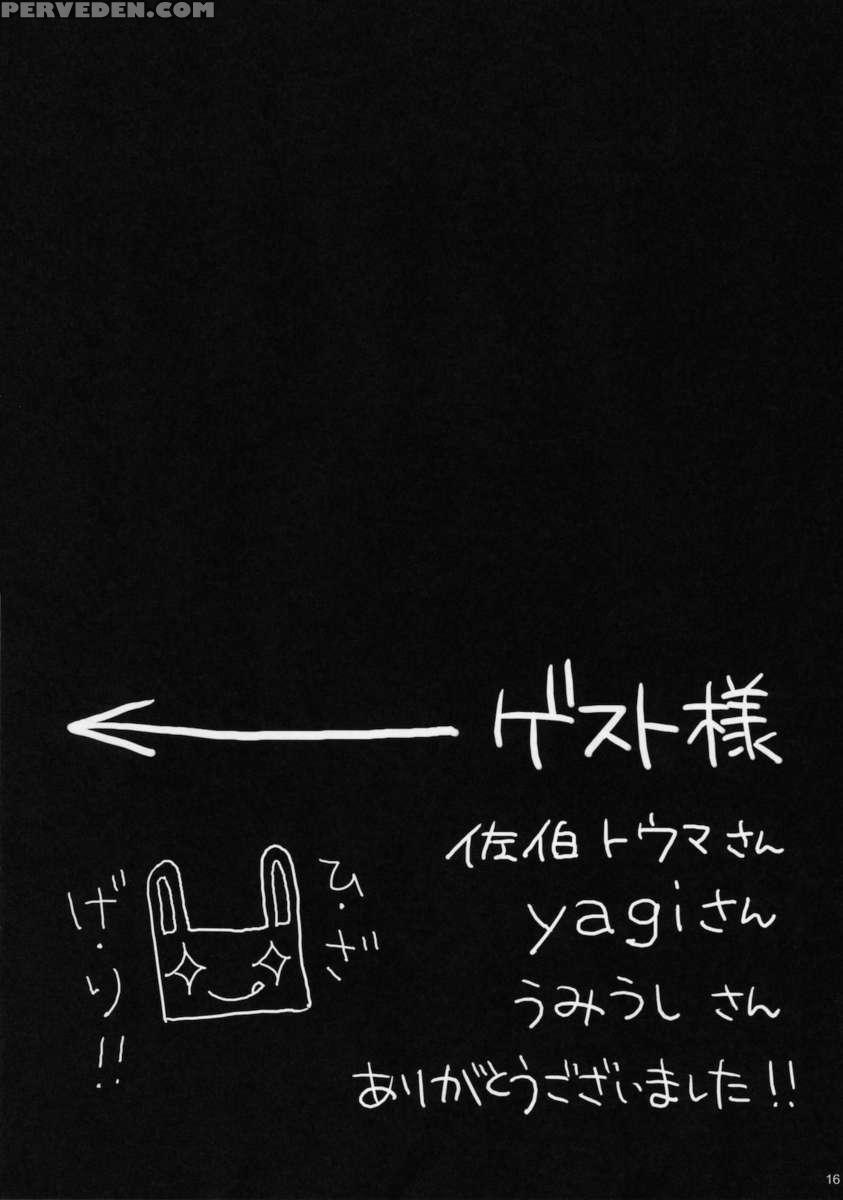 PERVEDEN.COM
ゲスト様
佐伯トウマさん
yagiさん
うみうしさん
ありがとうございました!!
ひ・ざ
げ・り!!
16